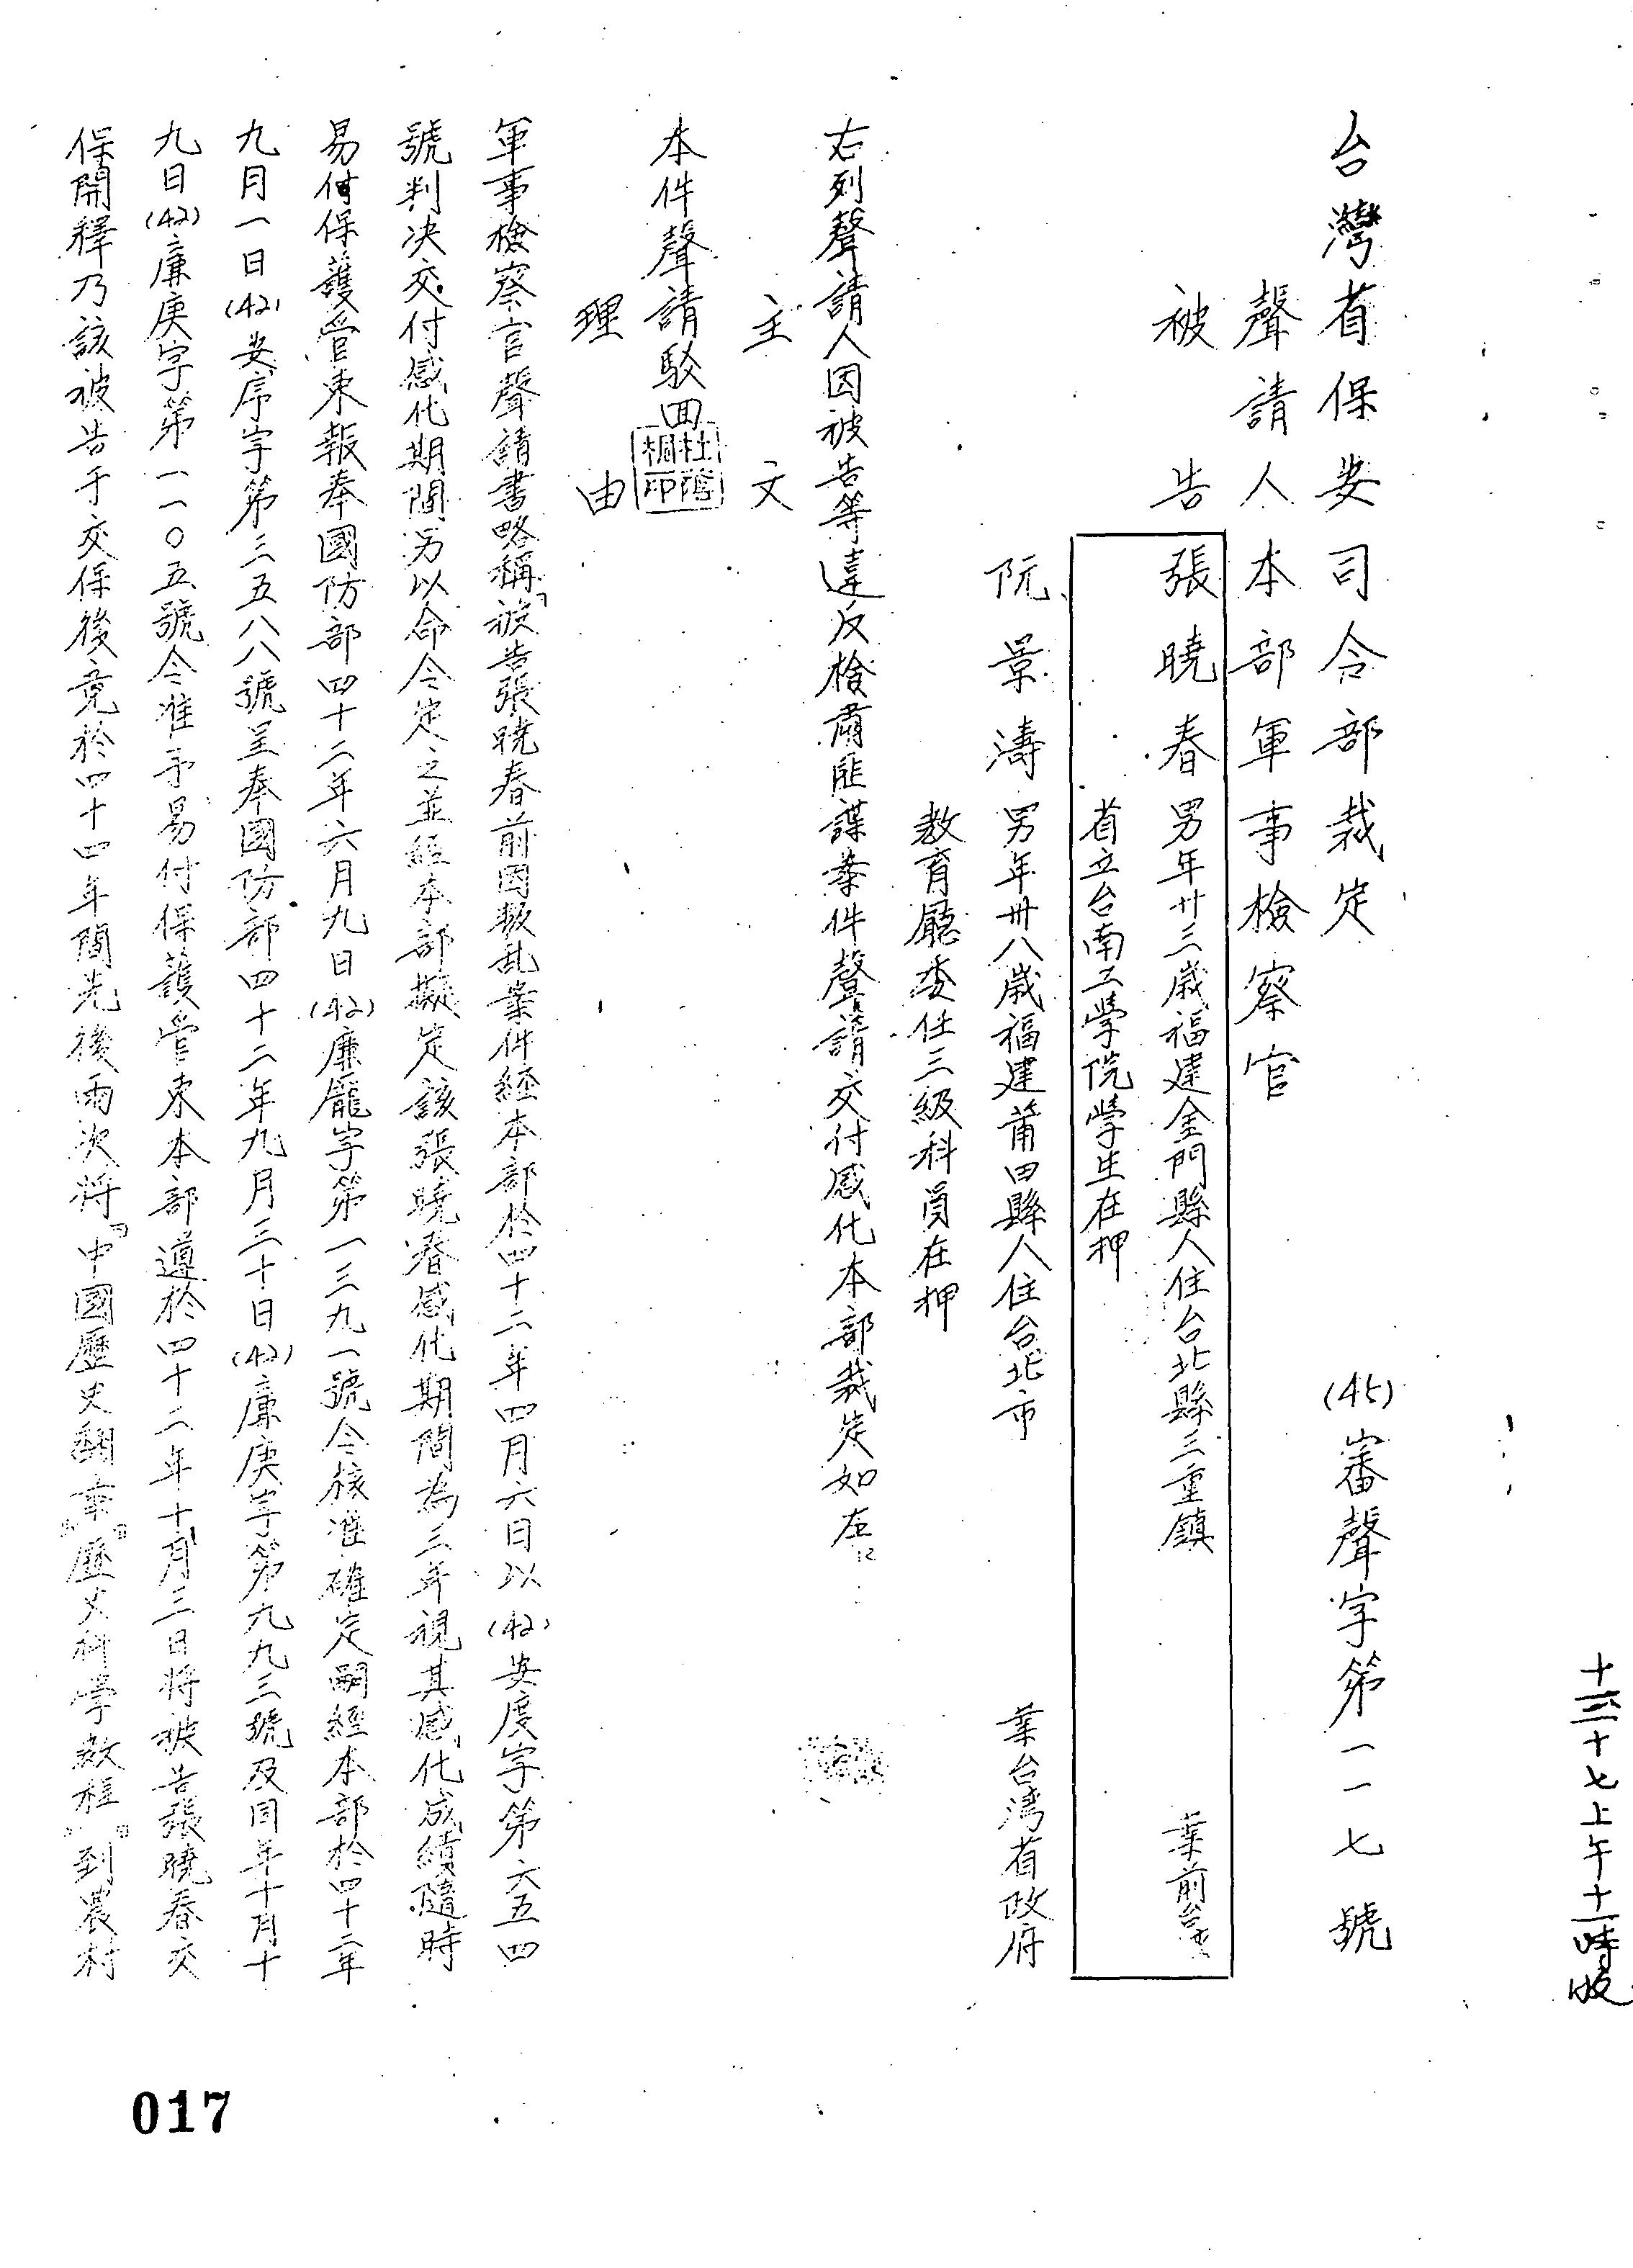 十三十七上午十一時收
台灣省保安司令部裁定
(45)審聲字第一一七號
聲請人本部軍事檢察官
被告張曉春男年廿三歲福建金門縣人住台北縣三重鎮
業前台灣
省立台南工學院學生在押
阮景濤男年卅八歲福建莆田縣人住台北市
業台湾省政府
教育廳委任三級科員在押
右列聲請人因被告等違反檢肅匪諜業件聲請交付感化本部裁定如左
主文
本件聲請駁回
杜蔭桐印
理由
軍事檢察官聲請書略稱「被告張曉春前因叛乱業件經本部於四十二年四月六日以(42)安度字第六五四
號判决交付感化期間另以命令定之並經本部擬定該張曉春感化期間為三年視其感化成績隨時
易付保護管束報奉國防部四十二年六月九日(42)廉龐字第一三九一號令核准確定嗣經本部於四十二年
九月一日(42)安序字第三五八八號呈奉國防部四十二年九月三十日(42)廉庚字第九九三號及同年十月十
九日(42)廉庚字第一一〇五號令准予易付保護管束本部遵於四十二年十月三日將被告張曉春交
保開釋乃該被告于交保後竟於四十四年間先後兩次將「中國歷史翻章」「歷史科學教程」到農村
017